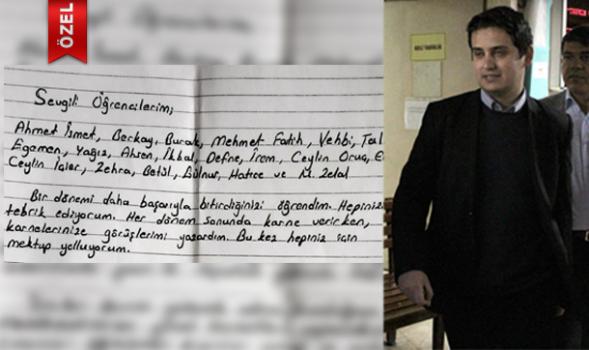 ÖZEL
Sevgili Öğrencilerim;
Ahmet İsmet, Berkay, Burak, Mehmet Fatih, Vehbi, Tal
Egemen, Yağız, Ahsen, İkbal, Defne, İrem, Ceylin Oruç, E
Ceylin İçler, Zehra, Betül, Gülnur, Hatice ve M. Zelal
Bir dönemi daha başarıyla bitirdiğinizi öğrendim. Hepinizi
tebrik ediyorum. Her dönem sonunda karne verirken,
karnelerinize görüşlerimi yazardım. Bu kez hepiniz için
mektup yolluyorum.